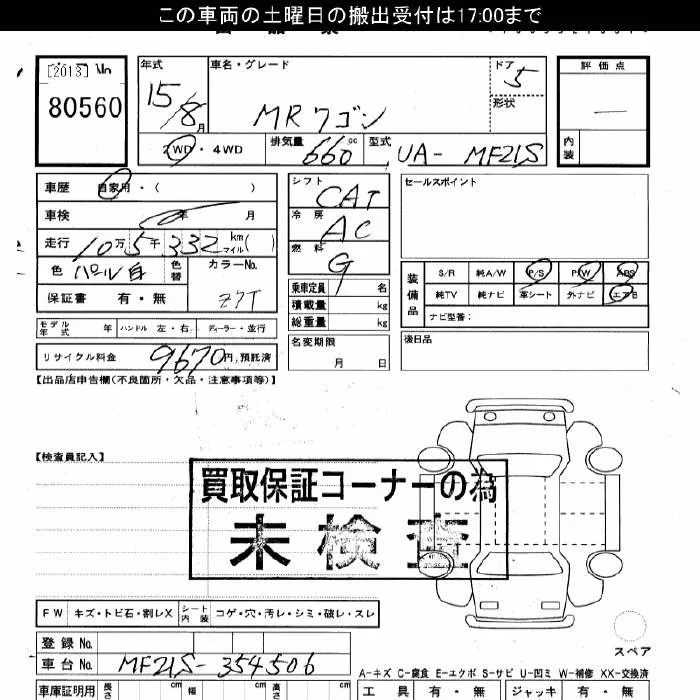 この車両の土曜日の搬出受付は17:00まで
[2013] No
80560
年式
15/8月
車名・グレード
MRワゴン
ドア
5
形状
評価点
―
内装
2WD・4WD
排気量
660cc
型式
UA- MF21S
車歴 自家用・( )
車検 年 月
走行 10万5千332 km マイル( )
色 パール白
色替
カラーNo.
Z7T
保証書 有・無
シフト
CAT
冷房
AC
燃料
G
乗車定員 名
積載量 kg
総重量 kg
セールスポイント
装備品
S/R 純A/W P/S P/W ABS
純TV 純ナビ 革シート 外ナビ エアB
ナビ型番:
モデル年式 年 ハンドル 左・右 ディーラー・並行
名変期限
月 日
後日品
リサイクル料金 9670円,預託済
【出品店申告欄(不良箇所・欠品・注意事項等)】
【検査員記入】
買取保証コーナーの為
未検査
FW キズ・トビ石・割レX シート内装 コゲ・穴・汚レ・シミ・破レ・スレ
登録No.
車台No. MF21S-354506
スペア
A-キズ C-腐食 E-エクボ S-サビ U-凹ミ W-補修 XX-交換済
車庫証明用 長さ cm 幅 cm 高さ cm
工具 有・無 ジャッキ 有・無